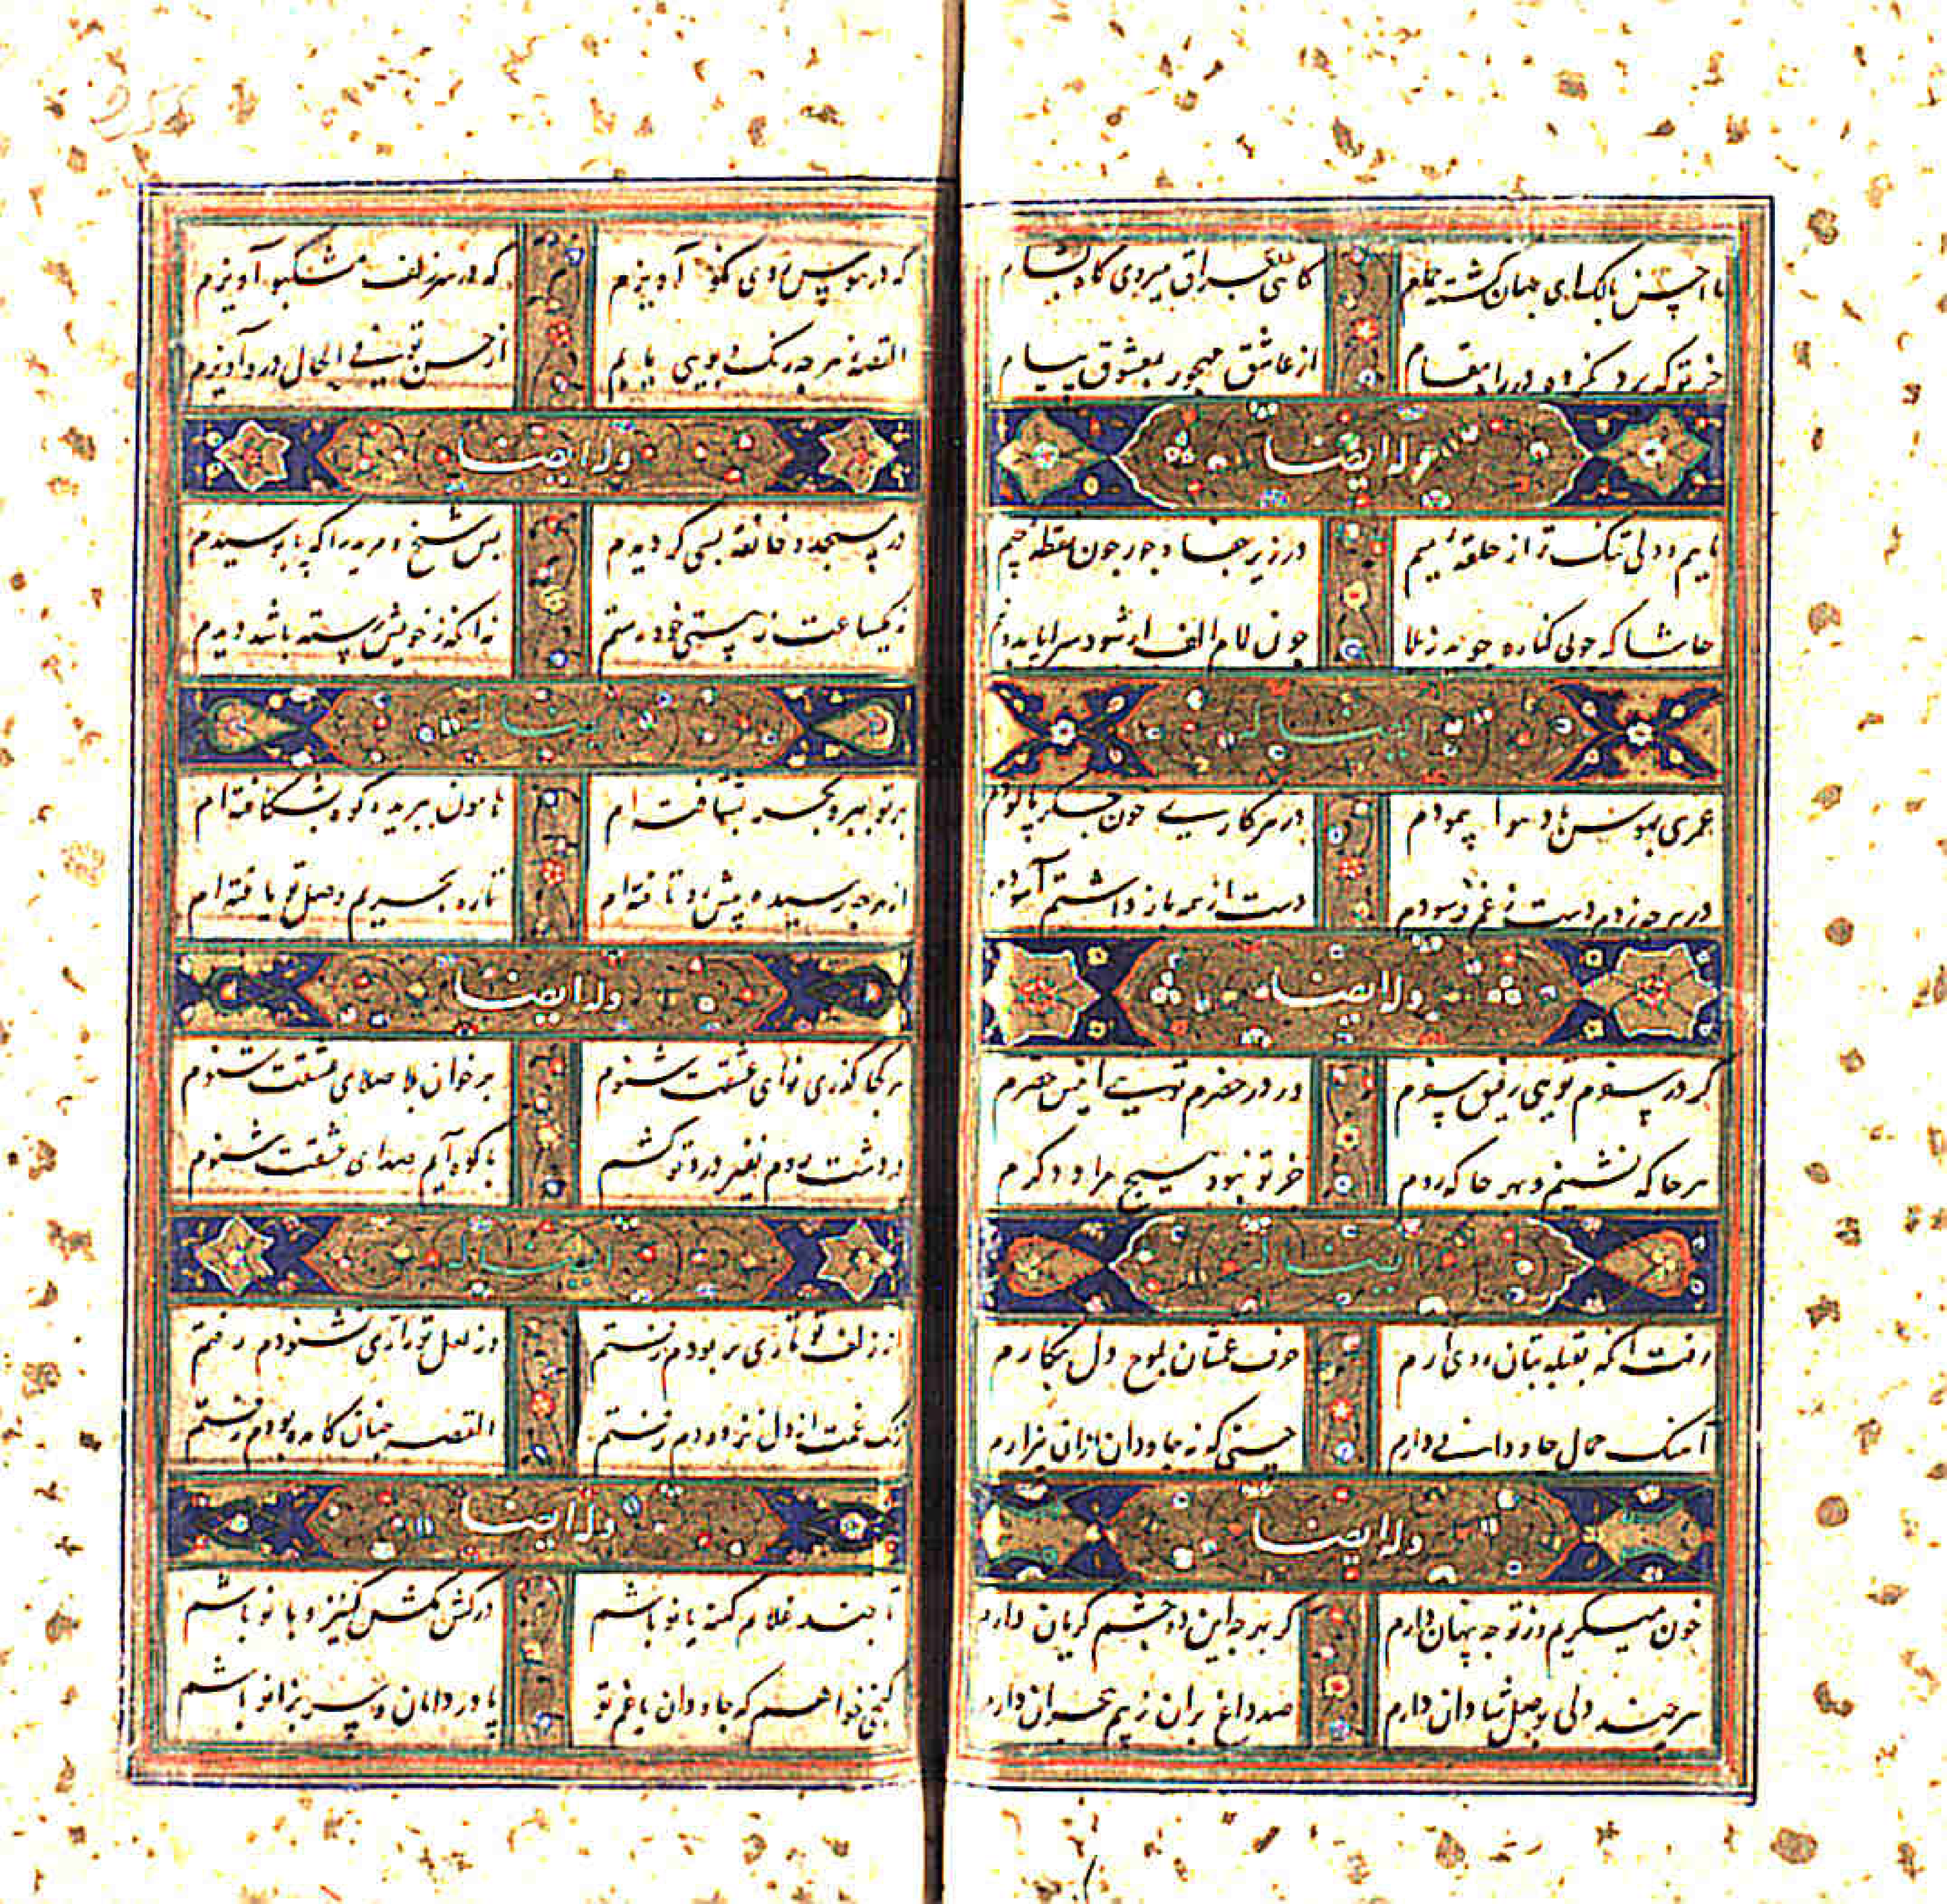 گاهی بعراق میروی گاه بشام
جز تو که برد
از عاشق مهجور بمعشوق پیام
وله ایضا
ماییم و دلی تنک تر از حلقهٔ میم
در زیر جفا و جور چون نقطهٔ جیم
حاشا که
چون لام الف ار شود سراپا بدو نیم
ایضا له
عمری بهوس باد هوا پیمودم
در هر کاری خون جکر پالودم
در هر چه زدم دست ز غم فرسودم
دست از همه باز داشتم آسودم
وله ایضا
کر در سفرم تویی رفیق سفرم
ور در حضرم تویی انیس حضرم
هر جا که نشینم و بهر جا که روم
جز تو نبود هیچ مراد دکرم
ایضا له
رفت آنکه بقبلهٔ بتان روی آرم
حرف غمشان بلوح دل بنکارم
آهنک جمال جاودانی دارم
حسنی که نه جاودان ازان بیزارم
وله ایضا
خون میکریم ز تو چه پنهان دارم
کز بهر چه این دو چشم کریان دارم
هر چند دلی بوصل شادان دارم
صد داغ بران ز بیم هجران دارم
که در هوس روی نکو آویزم
که در سر زلف مشکبو آویزم
القصه ز هر چه رنک و بویی یابم
از حسن تو فی الحال درو آویزم
وله ایضا
در مسجد و خانقه بسی کردیدم
بس شیخ و مرید را که پا بوسیدم
نه یکساعت ز هستی خود رستم
نه آنکه ز خویش رسته باشد دیدم
ایضا له
بر تو ببر و بحر بشتافته ام
هامون ببریده کوه بشکافته ام
از هر چه رسیده پیش رو تافته ام
تا ره بحریم وصل تو یافته ام
وله ایضا
هر کجا کذری نوای عشقت شنوم
بر خوان بلا صلای عشقت شنوم
در دشت روم نفیر درد تو کشم
با کوه آیم صدای عشقت شنوم
ایضا له
از زلف تو تاری بربودم رفتم
وز لعل تو رازی بشنودم رفتم
زنک غمت از دل بزدودم رفتم
القصه چنان کامده بودم رفتم
وله ایضا
تا چند غلام کهنه یا نو باشم
در کش مکش کنیز و بانو باشم
کنجی خواهم که جاودان با غم تو
پا در دامان و سر بزانو باشم